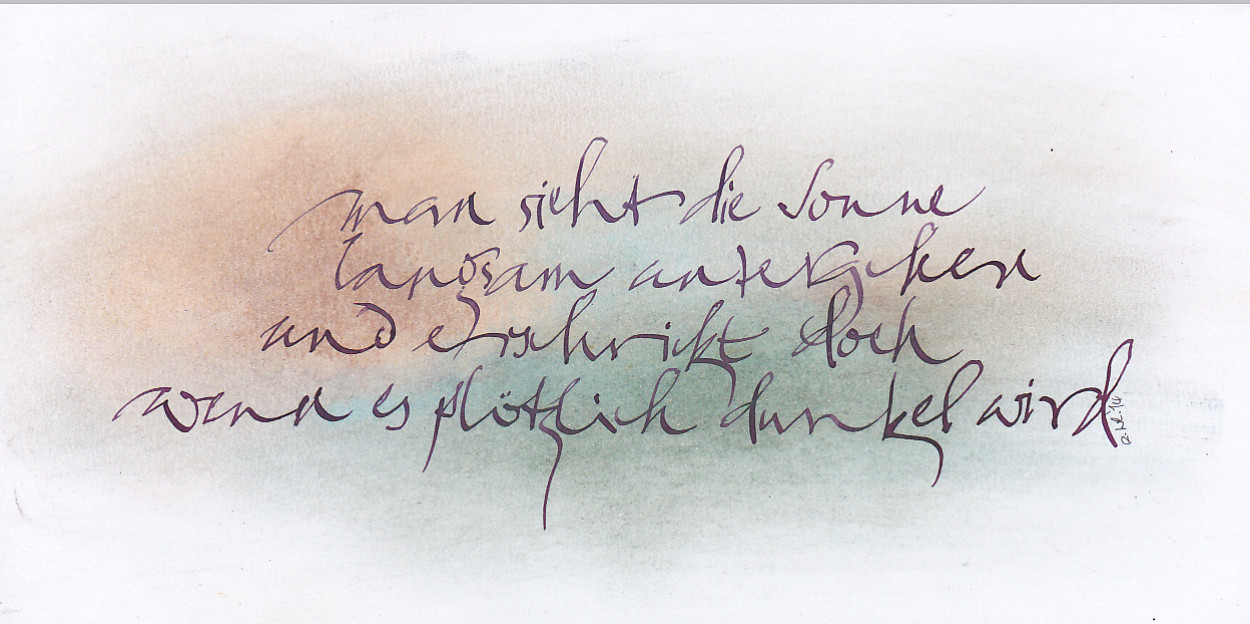 man sieht die Sonne
langsam untergehen
und erschrickt doch
wenn es plötzlich dunkel wird